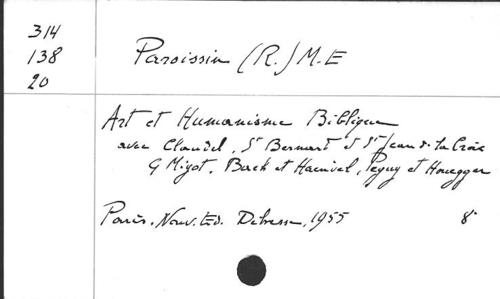 314
138
20
Paroissin (R.) M.E
Art et Humanisme Biblique
avec Claudel, St Bernard et St Jean de la Croix
G Migot, Bach et Haendel, Peguy et Honegger
Paris. Nouv. Ed. Debresse, 1955 8°